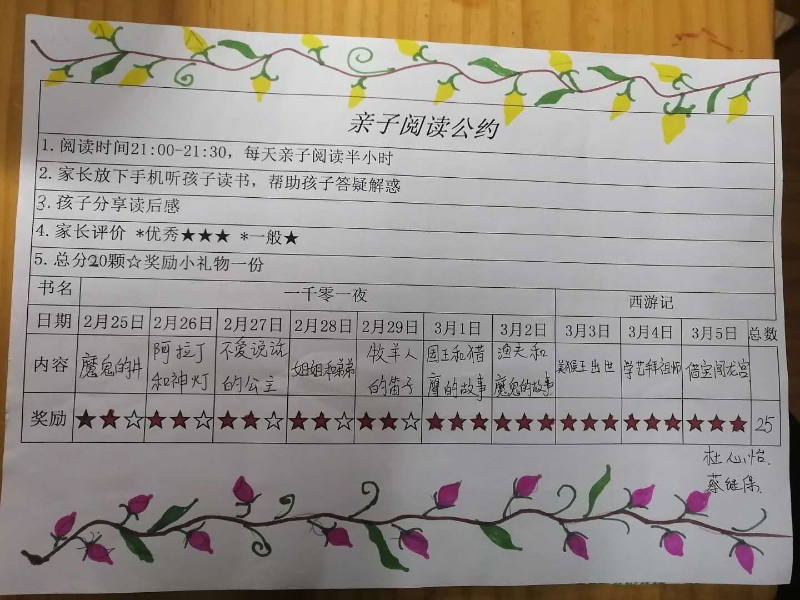 亲子阅读公约
1. 阅读时间21:00-21:30，每天亲子阅读半小时
2. 家长放下手机听孩子读书，帮助孩子答疑解惑
3. 孩子分享读后感
4. 家长评价 *优秀★★★ *一般★
5. 总分20颗☆奖励小礼物一份
书名 一千零一夜 西游记
日期 2月25日 2月26日 2月27日 2月28日 2月29日 3月1日 3月2日 3月3日 3月4日 3月5日 总数
内容 魔鬼的井 阿拉丁和神灯 不爱说话的公主 姐姐和弟弟 牧羊人的笛子 国王和猎鹰的故事 渔夫和魔鬼的故事 美猴王出世 学艺拜祖师 借宝闹龙宫
奖励 ★★☆ ★★☆ ★★☆ ★★☆ ★★☆ ★★★ ★★★ ★★★ ★★★ ★★★ 25
杜心怡.